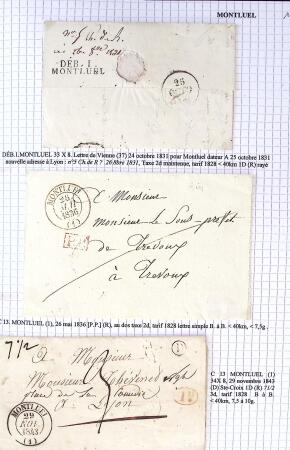 MONTLUEL
DEB. I.
MONTLUEL
25
DÉB.I.MONTLUEL 33 X 8. Lettre de Vienne (37) 24 octobre 1831 pour Montluel dateur A 25 octobre 1831
nouvelle adresse à Lyon : n°5 Ch de R ? 26 8bre 1831, Taxe 2d maintenue, tarif 1828 < 40km 1D (R) rayé
MONTLUEL
26
1836
(1)
P.P.
à Monsieur
monsieur le Sous préfet
de Trevoux
à Trevoux
C 13. MONTLUEL (1), 26 mai 1836 [P.P.] (R), au dos taxe 2d, tarif 1828 lettre simple B. à B. < 40km, < 7,5g .
7 1/2
à Monsieur
Monsieur
place de
à Lyon
D
1D
MONTLUEL
29
NOV.
1843
(1)
C 13 MONTLUEL (1)
34X 8, 29 novembre 1843
(D) Ste-Croix 1D (R) 7 1/2
3d, tarif 1828 B à B.
< 40km, 7,5 à 10g.